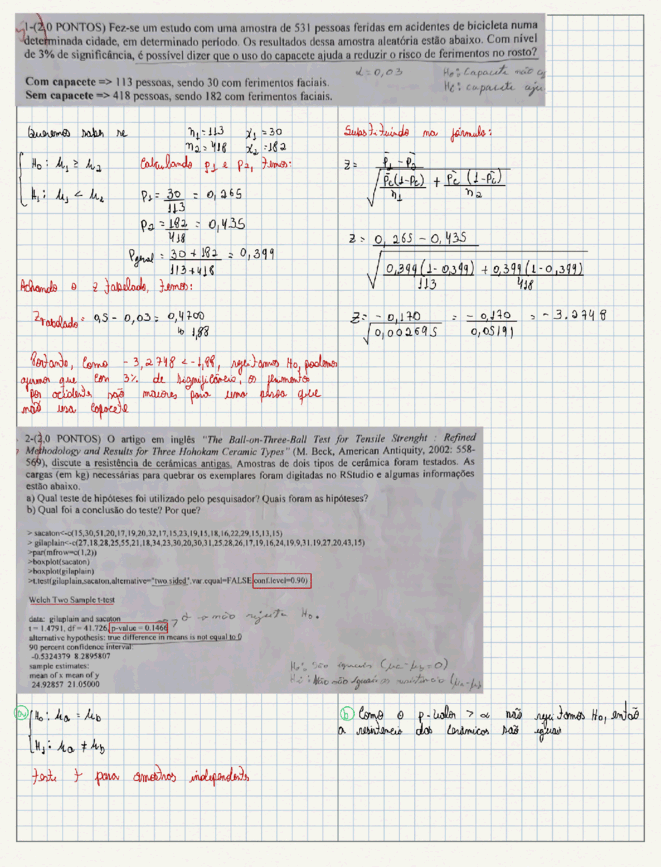 1-(2,0 PONTOS) Fez-se um estudo com uma amostra de 531 pessoas feridas em acidentes de bicicleta numa
determinada cidade, em determinado período. Os resultados dessa amostra aleatória estão abaixo. Com nível
de 3% de significância, é possível dizer que o uso do capacete ajuda a reduzir o risco de ferimentos no rosto?
α=0,03
H₀: Capacete não
Com capacete => 113 pessoas, sendo 30 com ferimentos faciais.
H₁: capacete
Sem capacete => 418 pessoas, sendo 182 com ferimentos faciais.
Queremos saber se
n₁=113 x₁=30
n₂=418 x₂=182
H₀: μ₁ ≥ μ₂
H₁: μ₁ < μ₂
Calculando p₁ e p₂, temos:
P₁ = 30/113 = 0,265
P₂ = 182/418 = 0,435
Pgeral = 30 + 182 / 113 + 418 = 0,399
Achando o z tabelado, temos:
Ztabelado = 0,5 - 0,03 = 0,4700
↳ 1,88
Substituindo na fórmula:
Z = p̄₁ - p̄₂ / √(p̄c(1-p̄c)/n₁ + p̄c(1-p̄c)/n₂)
Z = 0,265 - 0,435 / √(0,399(1-0,399)/113 + 0,399(1-0,399)/418)
Z = -0,170/√0,002695 = -0,170/0,05191 = -3.2748
Portanto, como -3,2748 < -1,88, rejeitamos H₀, podemos
que com 3% de significância, os ferimentos
por acidente são maiores para uma pessoa que
não usa capacete
2-(2,0 PONTOS) O artigo em inglês "The Ball-on-Three-Ball Test for Tensile Strenght : Refined
Methodology and Results for Three Hohokam Ceramic Types" (M. Beck, American Antiquity, 2002: 558-
569), discute a resistência de cerâmicas antigas. Amostras de dois tipos de cerâmica foram testados. As
cargas (em kg) necessárias para quebrar os exemplares foram digitadas no RStudio e algumas informações
estão abaixo.
a) Qual teste de hipóteses foi utilizado pelo pesquisador? Quais foram as hipóteses?
b) Qual foi a conclusão do teste? Por que?
> sacaton<-c(15,30,51,20,17,19,20,32,17,15,23,19,15,18,16,22,29,15,13,15)
> gilaplain<-c(27,18,28,25,55,21,18,34,23,30,20,30,31,25,28,26,17,19,16,24,19,9,31,19,27,20,43,15)
>par(mfrow=c(1,2))
>boxplot(sacaton)
>boxplot(gilaplain)
>t.test(gilaplain,sacaton,alternative="two.sided",var.equal=FALSE,conf.level=0.90)
Welch Two Sample t-test
data: gilaplain and sacaton
t = 1.4791, df = 41.726, p-value = 0.1466
> α → não rejeita H₀.
alternative hypothesis: true difference in means is not equal to 0
90 percent confidence interval:
-0.5324379 8.2895807
sample estimates:
mean of x mean of y
24.92857 21.05000
H₀: São iguais (μa-μb=0)
H₁: Não são iguais as resistência (μa-μb
a) H₀: μa = μb
H₁: μa ≠ μb
teste t para amostras independente
b) Como o p-valor > α não rejeitamos H₀, então
a resistencia das cerâmicas são iguais